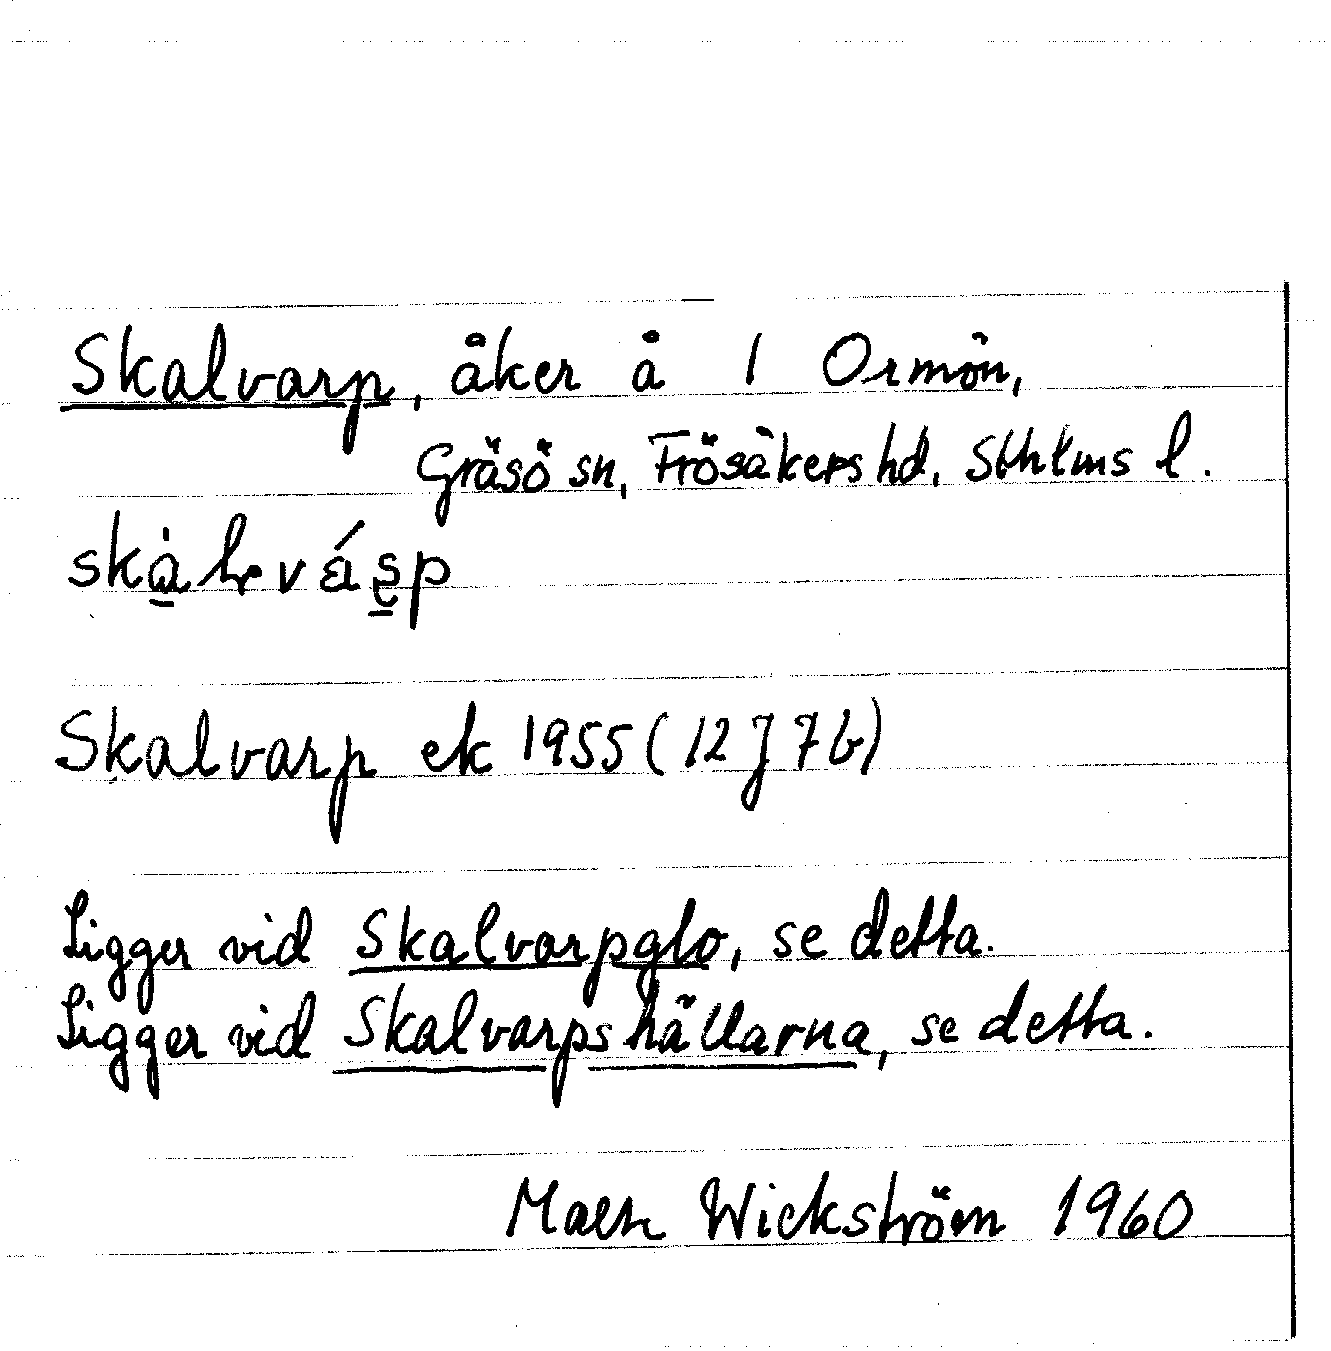 Skalvarp, åker å 1 Ormön,
Gräsö sn, Frösåkers hd, Sthlms l.
Skalvarp ek 1955 (12 J 7 b)
Ligger vid Skalvarpglo, se detta.
Ligger vid Skalvarpshällarna, se detta.
Wickström 1960